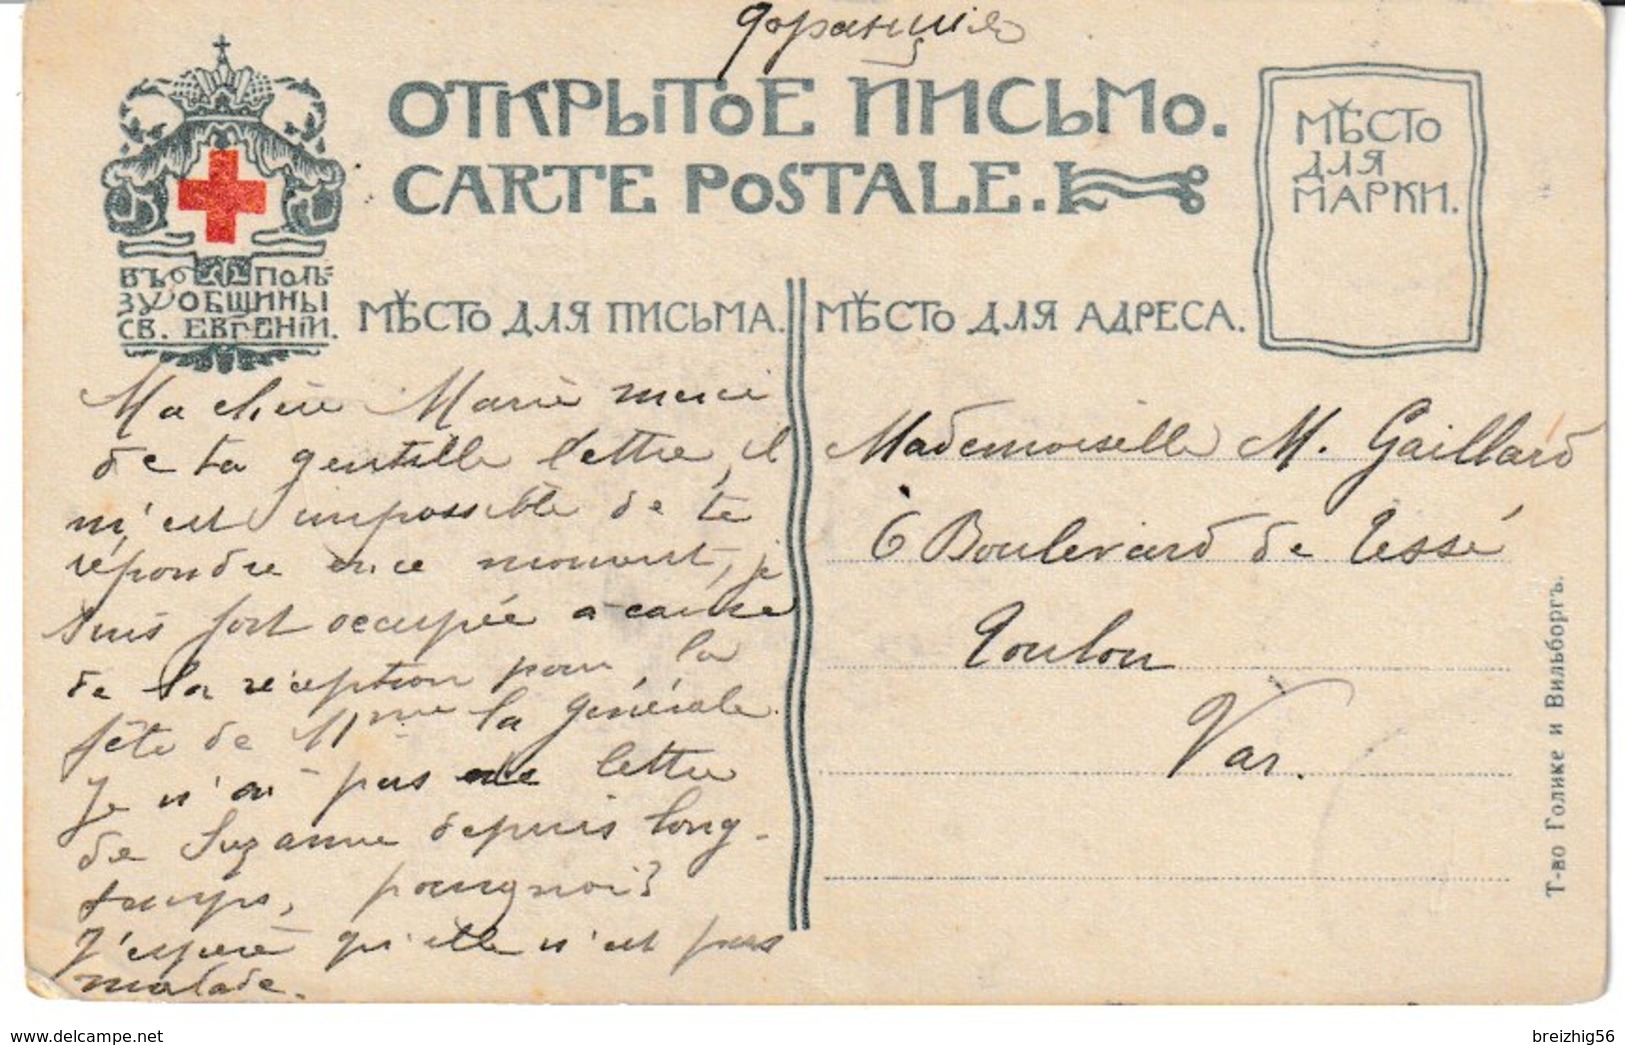 Франція
ОТКРЫТОЕ ПИСЬМО.
CARTE POSTALE.
МѢСТО
ДЛЯ
МАРКИ.
ВЪ ПОЛЬ=
ЗУ ОБЩИНЫ
СВ. ЕВГЕНІИ.
МѢСТО ДЛЯ ПИСЬМА.
МѢСТО ДЛЯ АДРЕСА.
Ma chère Marie merci
de ta gentille lettre, il
m'est impossible de te
répondre en ce moment, je
suis fort occupée à cause
de la réception pour la
fête de Mme la Générale.
Je n'ai pas de lettre
de Suzanne depuis long-
temps, pourquoi?
J'espère qu'elle n'est pas
malade.
Mademoiselle M. Gaillard
6 Boulevard de Tessé
Toulon
Var.
Т-во Голике и Вильборгъ.
delcampe.net
breizhig56